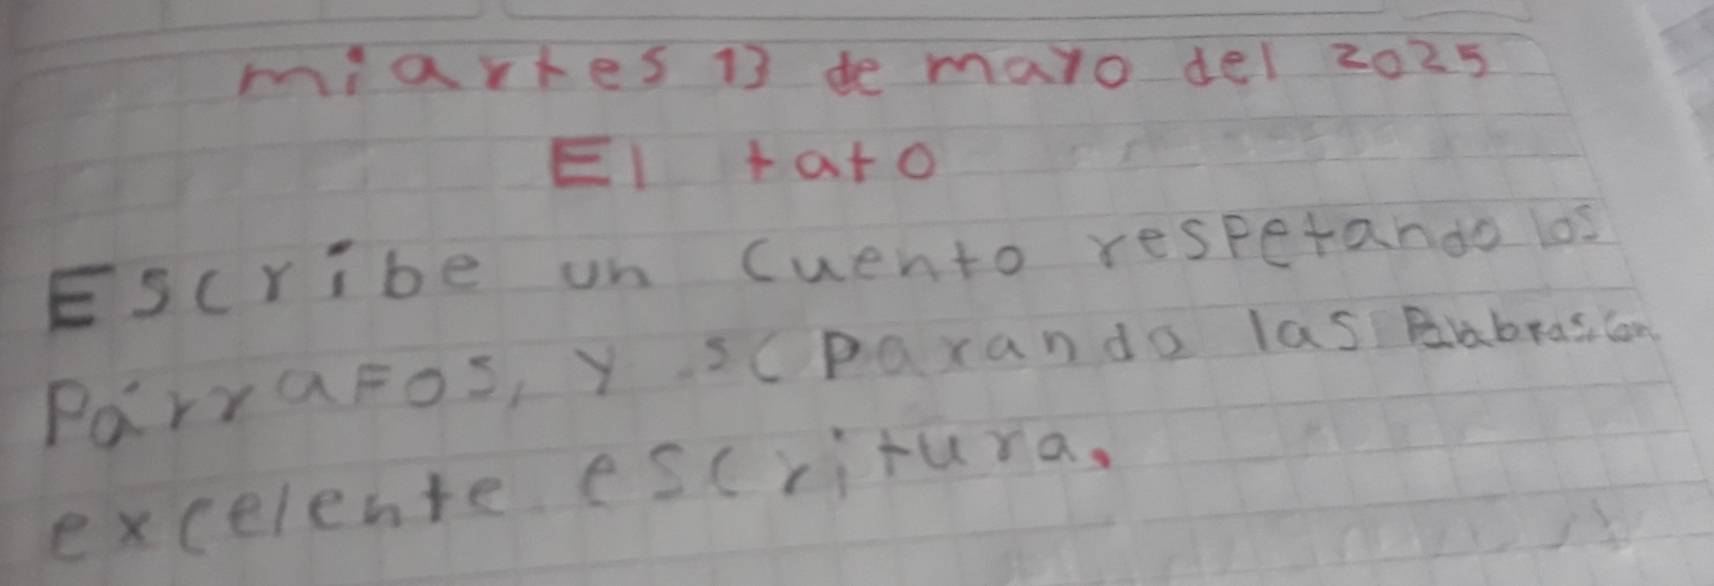 miartes 13 de mayo del 2025
El tato
Escribe un cuento respetando los
Párrafos, y separando las Palabras, con
excelente escritura.